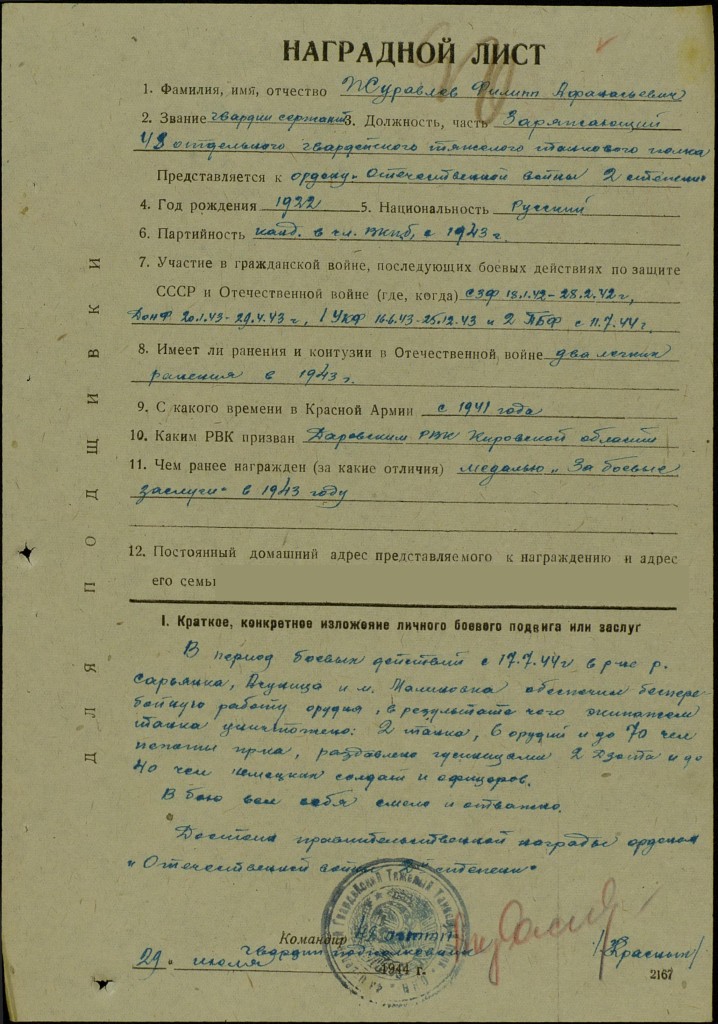 НАГРАДНОЙ ЛИСТ
1. Фамилия, имя, отчество Журавлев Филипп Афанасьевич
2. Звание гвардии сержант 3. Должность, часть Заряжающий
48 отдельного гвардейского тяжелого танкового полка
Представляется к ордену „Отечественной войны 2 степени“
4. Год рождения 1922 5. Национальность Русский
6. Партийность канд. в чл. ВКПб, с 1943 г.
7. Участие в гражданской войне, последующих боевых действиях по защите
СССР и Отечественной войне (где, когда) СЗФ 18.1.42-28.2.42 г,
ДонФ 20.1.43-29.4.43 г, 1 УКФ 16.6.43-25.12.43 и 2 ПБФ с 11.7.44 г,
8. Имеет ли ранения и контузии в Отечественной войне два легких
ранения в 1943 г.
9. С какого времени в Красной Армии с 1941 года
10. Каким РВК призван Даровским РВК Кировской области
11. Чем ранее награжден (за какие отличия) медалью „За боевые
заслуги“ в 1943 году
12. Постоянный домашний адрес представляемого к награждению и адрес
его семьи
ДЛЯ ПОДШИВКИ
I. Краткое, конкретное изложение личного боевого подвига или заслуг
В период боевых действий с 17.7.44 г в р-не р.
Сарьянка, и м. Малиновка обеспечил беспере-
бойную работу орудия, в результате чего экипажем
танка уничтожено: 2 танка, 6 орудий и до 70 чел
пехоты пр-ка, раздавлено гусеницами 2 и до
40 чел немецких солдат и офицеров.
В бою вел себя смело и отважно.
Достоин правительственной награды ордена
„Отечественной войны 2 степени“
Командир 48
гвардии подполковник
/Красных/
29. июля 1944 г.
2167
Гвардейский Тяжелый